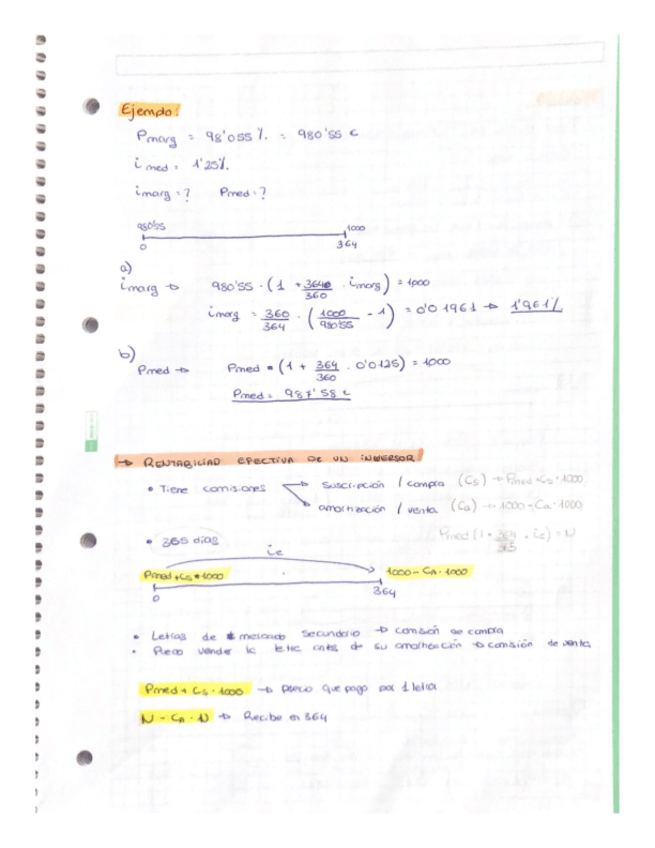 Ejemplo:
Pmarg = 98'055 %. = 980'55 €
i med = 1'25%.
imarg = ? Pmed = ?
980'55 1000
0 364
a)
imarg → 980'55 · (1 + 364/360 · imarg) = 1000
imarg = 360/364 · (1000/980'55 - 1) = 0'01961 → 1'961%
b)
Pmed → Pmed * (1 + 364/360 · 0'0125) = 1000
Pmed = 987'58 €
→ RENTABILIDAD EFECTIVA DE UN INVERSOR
• Tiene comisiones → suscripción / compra (Cs) → Pmed + Cs · 1000
→ amortización / venta (Ca) → 1000 - Ca · 1000
Pmed (1 + 364/365 · ie) = N
• 365 días
ie
Pmed + Cs * 1000 1000 - CA · 1000
0 364
• Letras de mercado secundario → comisión de compra
• Puedo vender la letra antes de su amortización → comisión de venta
Pmed + Cs · 1000 → precio que pago por 1 letra
N - CA · N → Recibe en 364